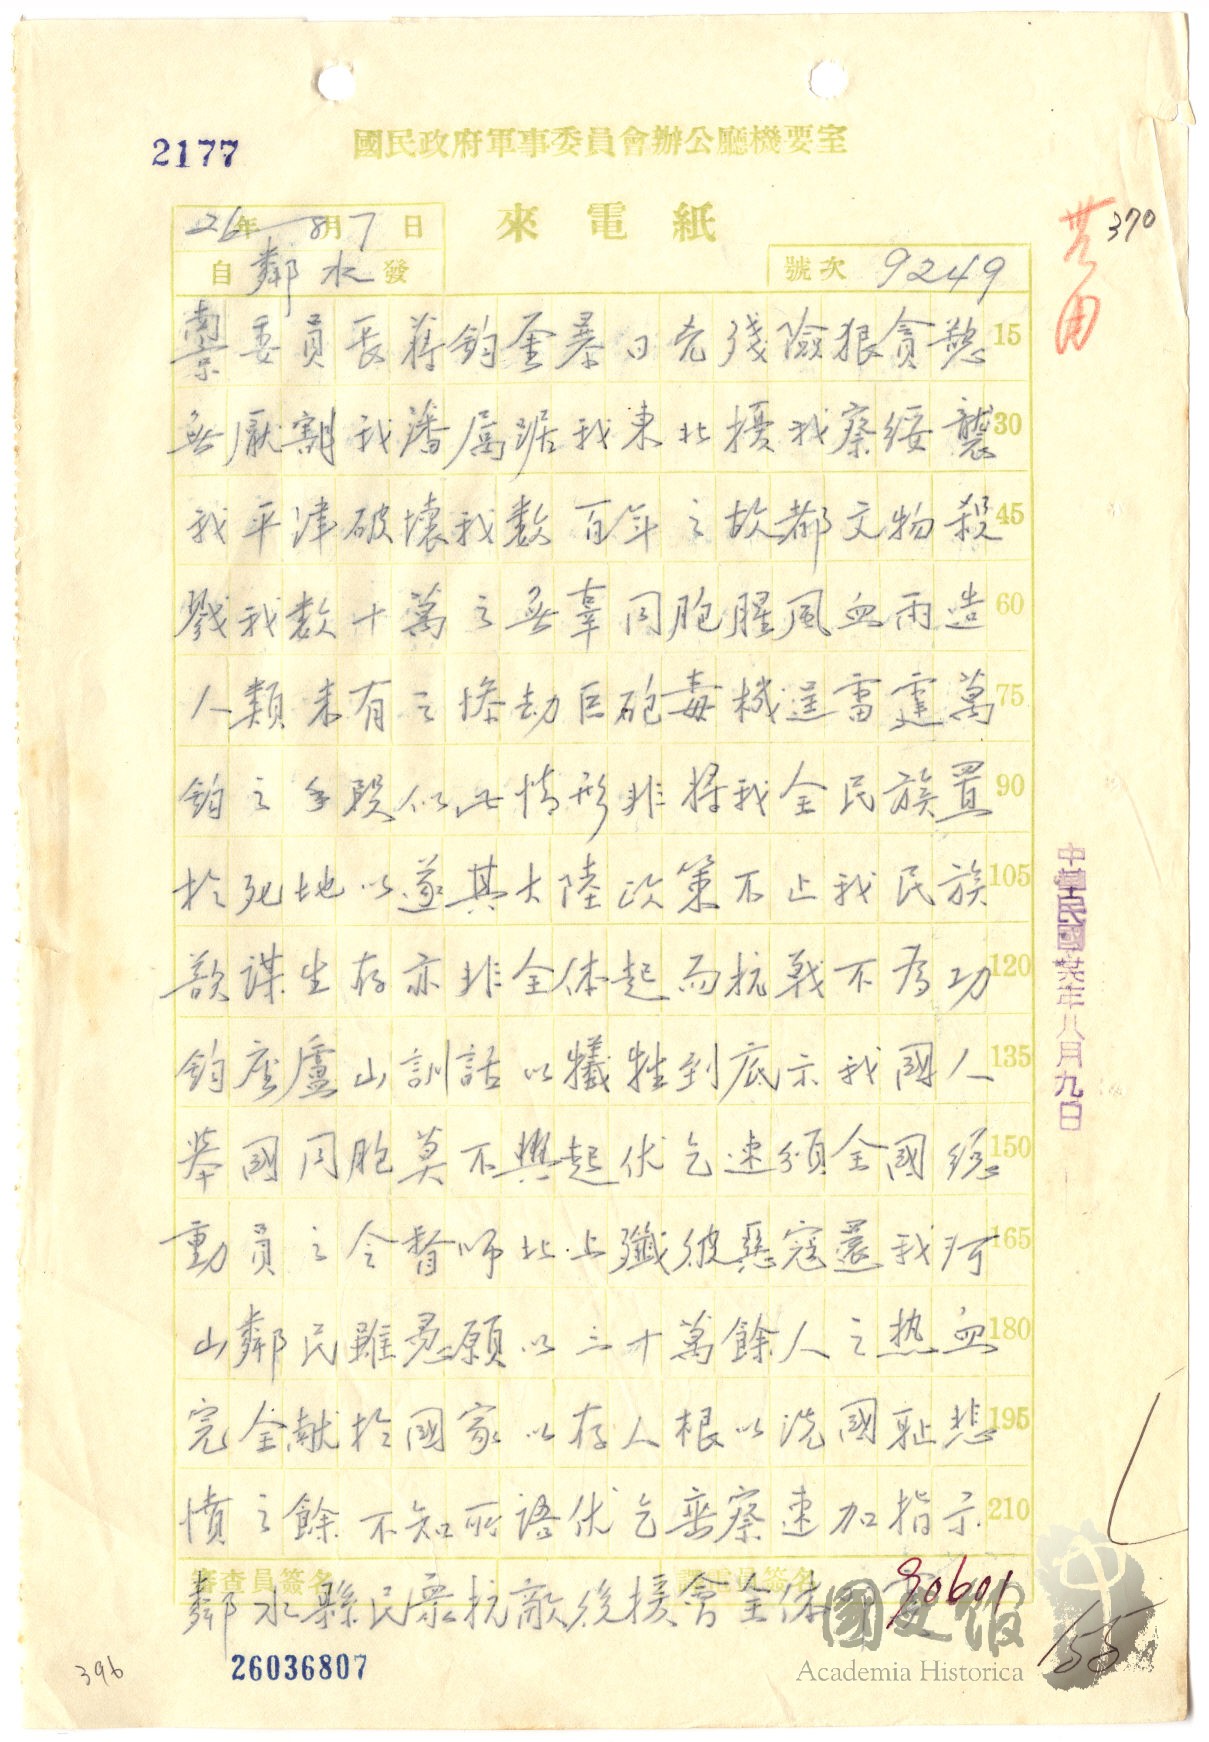 2177
國民政府軍事委員會辦公廳機要室
來電紙
26年8月7日
自鄰水發
號次 9249
370
南京委員長蔣鈞鑒暴日兇殘險狠貪慾 15
無厭割我藩屬踞我東北擾我察綏襲 30
我平津破壞我數百年之故都文物殺 45
戮我數十萬之無辜同胞腥風血雨造 60
人類未有之慘劫巨砲毒械逞雷霆萬 75
鈞之手段似此情形非將我全民族置 90
於死地以遂其大陸政策不止我民族 105
欲謀生存亦非全体起而抗戰不為功 120
鈞座廬山訓話以犧牲到底示我國人 135
舉國同胞莫不興起伏乞速頒全國總 150
動員之令督师北上殲彼惡寇還我河 165
山鄰民雖愚願以三十萬餘人之热血 180
完全献於國家以存人根以洗國耻悲 195
憤之餘不知所語伏乞垂察速加指示 210
審查員簽名 譯電員簽名
鄰水縣民眾抗敵後援會全体
中華民國廿六年八月九日
90601
155
396
26036807
國史館
Academia Historica